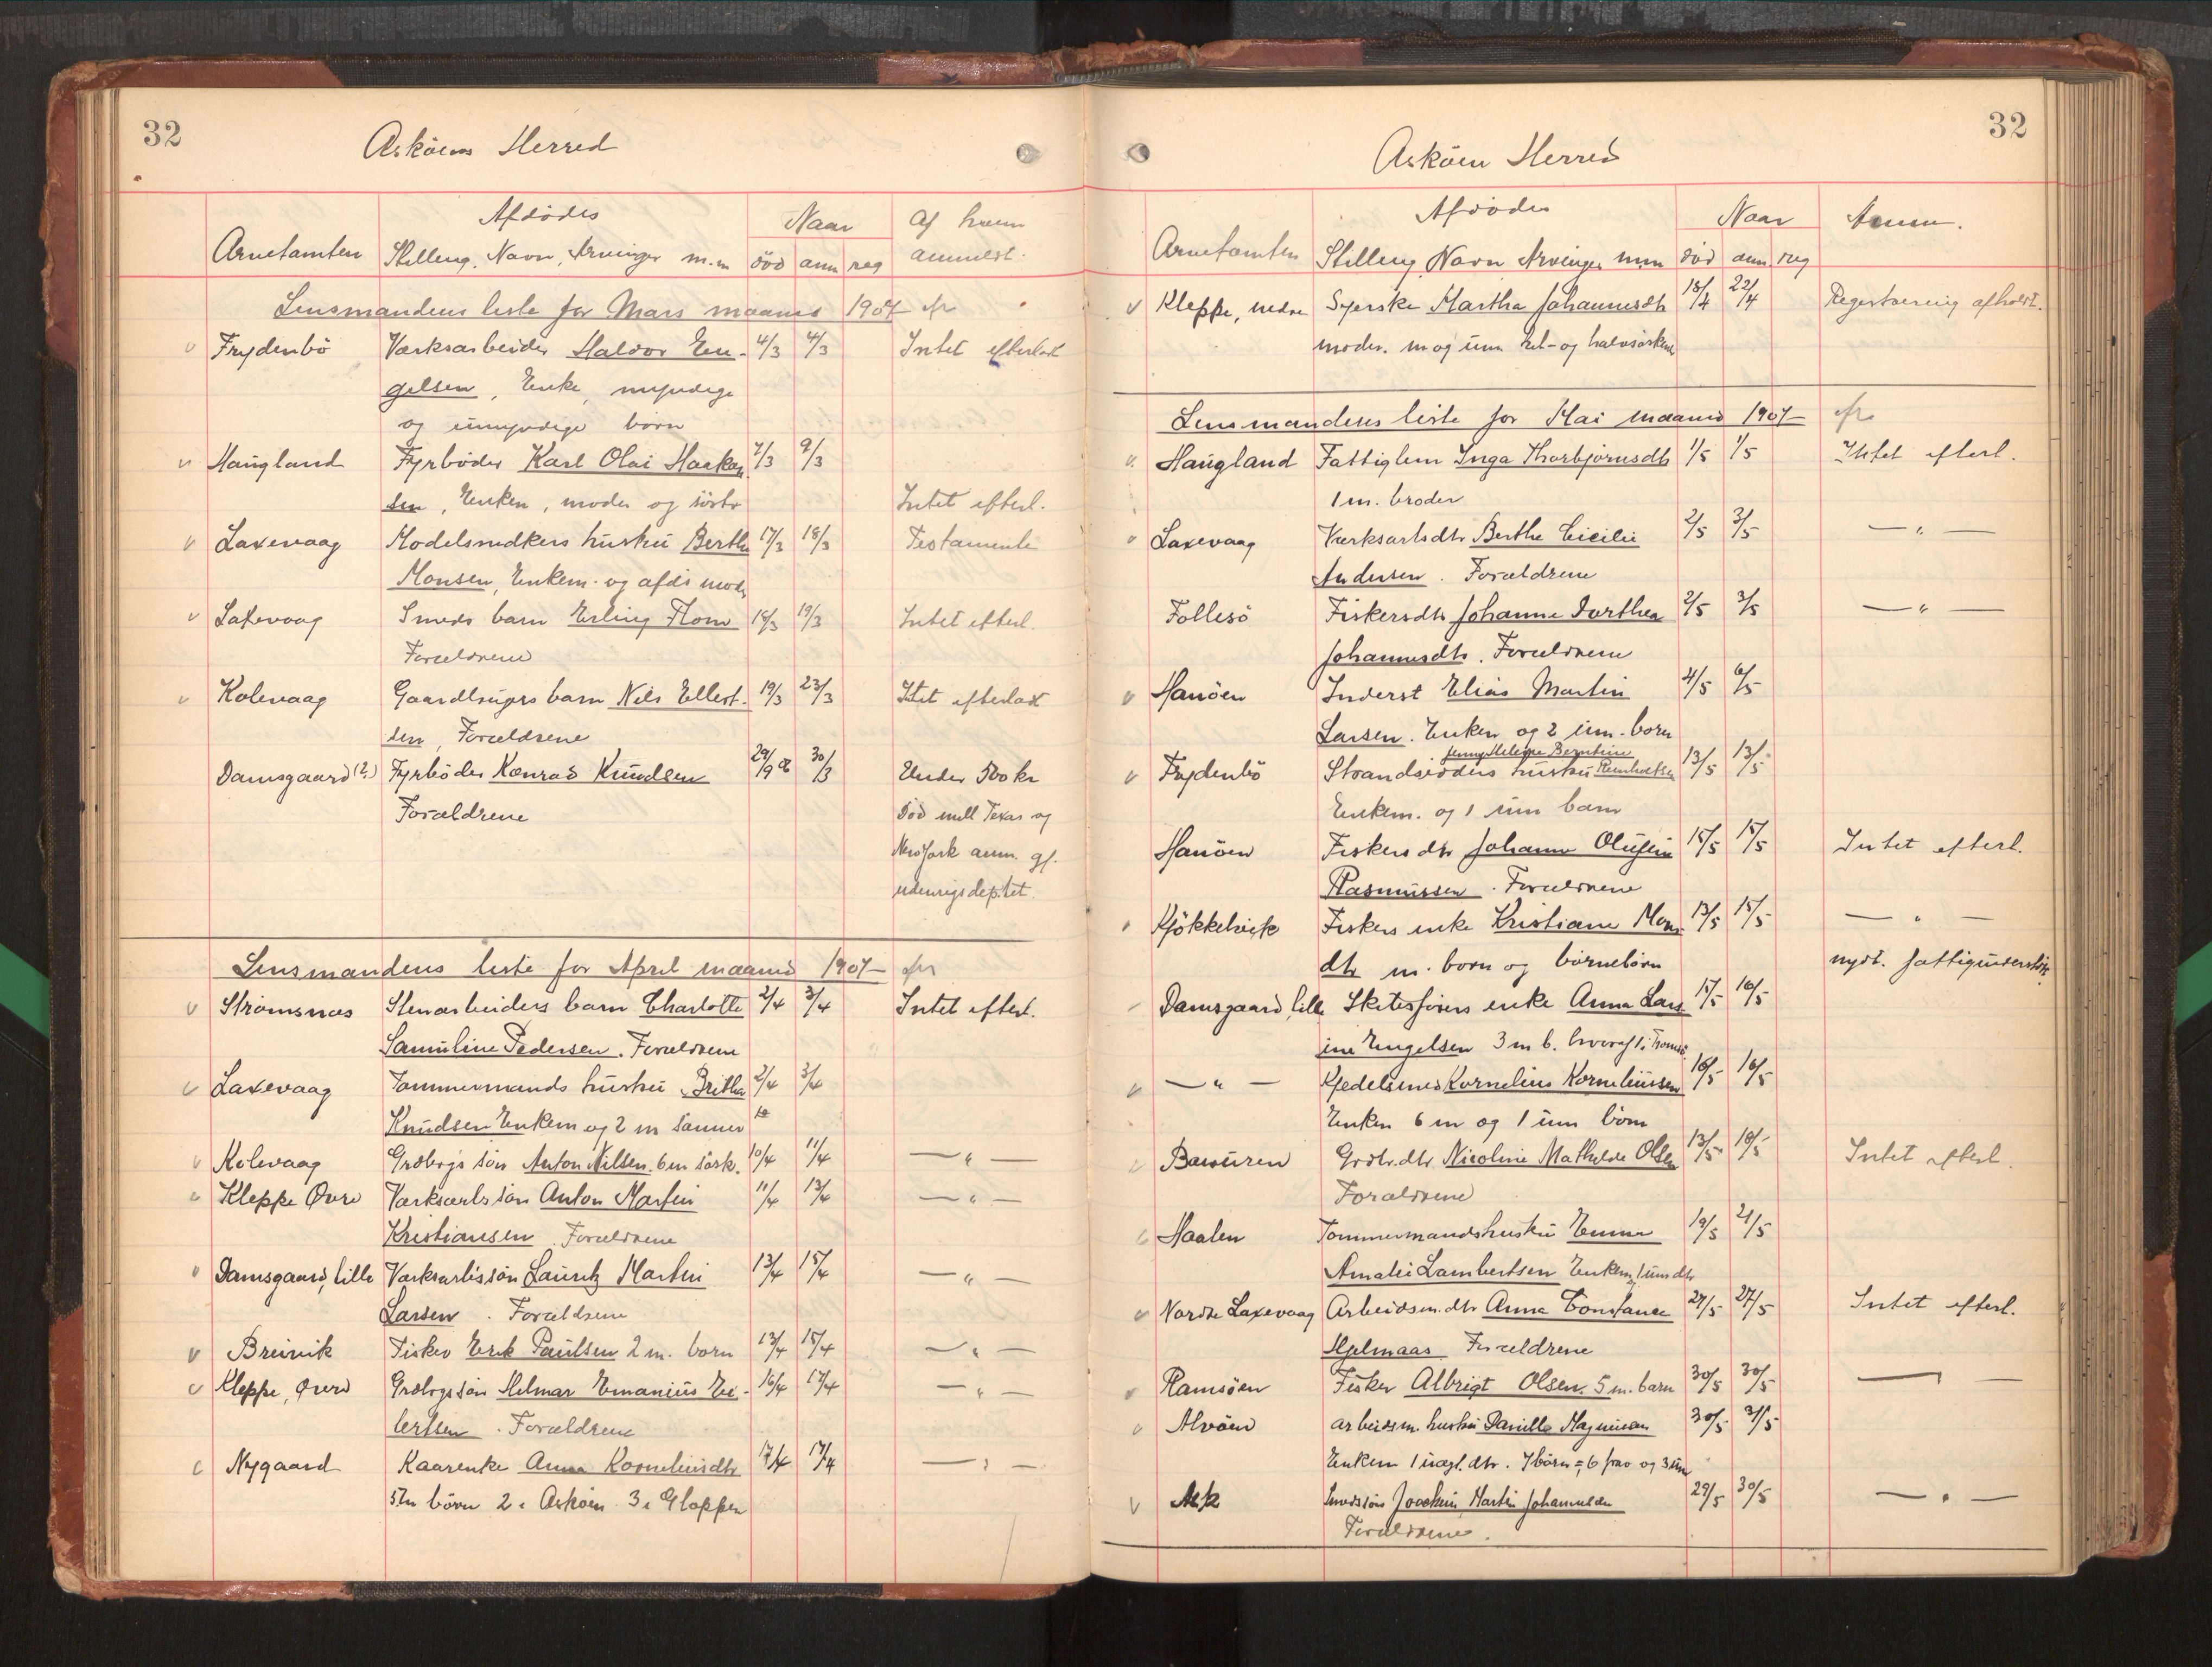 32
Askøens Herred
Arnetomten Afdødes Stilling, Navn, Arvinger m.m Naar død anm reg Af hvem anmeldt.
Lensmandens liste for Mars maaned 1907
v Frydenbö Værksarbeider Haldor En- 4/3 4/3 Intet efterladt
gelsen, Enke, myndige
og umyndige börn
v Haugland Fyrböder Karl Olai Haakon 7/3 9/3
sen, Enken, moder og söstr Intet efterl.
v Laxevaag Modelsnedkers hustru Berthe 17/3 18/3 Testamente
Monsen, Enkem. og afdö mods
v Laxevaag Smeds barn Erling Flom 18/3 19/3 Intet efterl.
Forældrene
v Kolevaag Gaardbrugers barn Nils Ellert- 19/3 23/3 Itet efterladt
sen, Forældrene
Damsgaard (?) Fyrböder Konrad Knudsen 29/9 06 30/3 Under 500 kr
Forældrene Död mell Texas og
New York anm. gj.
udenrigsdeptet.
Lensmandens liste for April maaned 1907
v Strömsnæs Stenarbeiders barn Charlotte 2/4 3/4 Intet efterl.
Samuline Pedersen. Forældrene
v Laxevaag Tømmermands hustru Britha 2/4 3/4
Knudsen Enkem og 2 m sønner
v Kolevaag Grdbrgs sön Anton Nilsen. 6 m sösk. 10/4 11/4 — " —
v Kleppe Øvre Værksarbs sön Anton Martin 11/4 13/4 — " —
Kristiansen. Forældrene
v Damsgaard, lille Værksarbs sön Lauritz Martin 13/4 15/4 — " —
Larsen. Forældrene
v Breivik Fisker Erik Paulsen 2 m. born 13/4 15/4 — " —
v Kleppe, Øvre Grdbrgs sön Helmar Emanius Ei- 16/4 17/4 — " —
lertsen. Forældrene
v Nygaard Kaarenke Anna Korneliusdtr 17/4 17/4 — " —
5 m börn 2 i Asköen 3 i Gloppen
32
Askøen Herred
Arnetomten Afdødes Stilling Navn Arvinger m.m Naar död anm. reg Anm.
v Kleppe, nedre Syerske Martha Johannesdtr 18/4 22/4 Registrering afholdt.
moder. m og um hel- og halvsöskende
Lensmandens liste for Mai maaned 1907
v. Haugland Fattiglem Inga Thorbjörnsdtr 1/5 1/5 Intet efterl.
1 m. broder
v Laxevaag Værksarbsdtr Berthe Cicilie 2/5 3/5 — " —
Andersen. Forældrene
Follesö Fiskersdtr Johanne Dorthea 2/5 3/5 — " —
Johannesdtr. Forældrene
v Hanöen Inderst Elias Martin 4/5 6/5
Larsen. Enken og 2 um. born
Jenny Helene Berntine
v Frydenbö Strandsidders hustru Reinholtsen 13/5 13/5
Enkem. og 1 um barn
Hanöen Fiskers dtr Johanne Olufine 15/5 15/5 Intet efterl.
Rasmussen. Forældrene
Kjökkelvik Fiskers enke Kristiane Mons 13/5 15/5 — " —
dtr m. born og börnebörn nydt. fattigunderstöt.
Damsgaard, lille Skibsførers enke Anna Lars- 15/5 16/5
ine Engelsen 3 m b. hvoraf 1 i Tromsö.
v — " — Kjedelsmed Kornelius Korneliussen 16/5 16/5
Enken 6 m og 1 um börn
Grdbr.dtr Nicoline Mathilde Olsen 13/5 18/5 Intet efterl.
Forældrene
Haalen Tømmermandshustru Emma 19/5 21/5
Amalie Lambertsen Enkem, 1 um dtr
v Nordre Laxevaag Arbeidsm. dtr Anna Constance 27/5 27/5 Intet efterl.
Hjelmaas Forældrene
v Ramsöen Fisker Albrigt Olsen. 5 m. barn 30/5 30/5 — " —
v Alvöen arbeidsm. hustru Magnusen 30/5 31/5
Enkem 1 dtr. 7 börn = 6 og 3 um
v Ask Smedssön Joachim Martin
29/5 30/5 — " —
Forældrene.